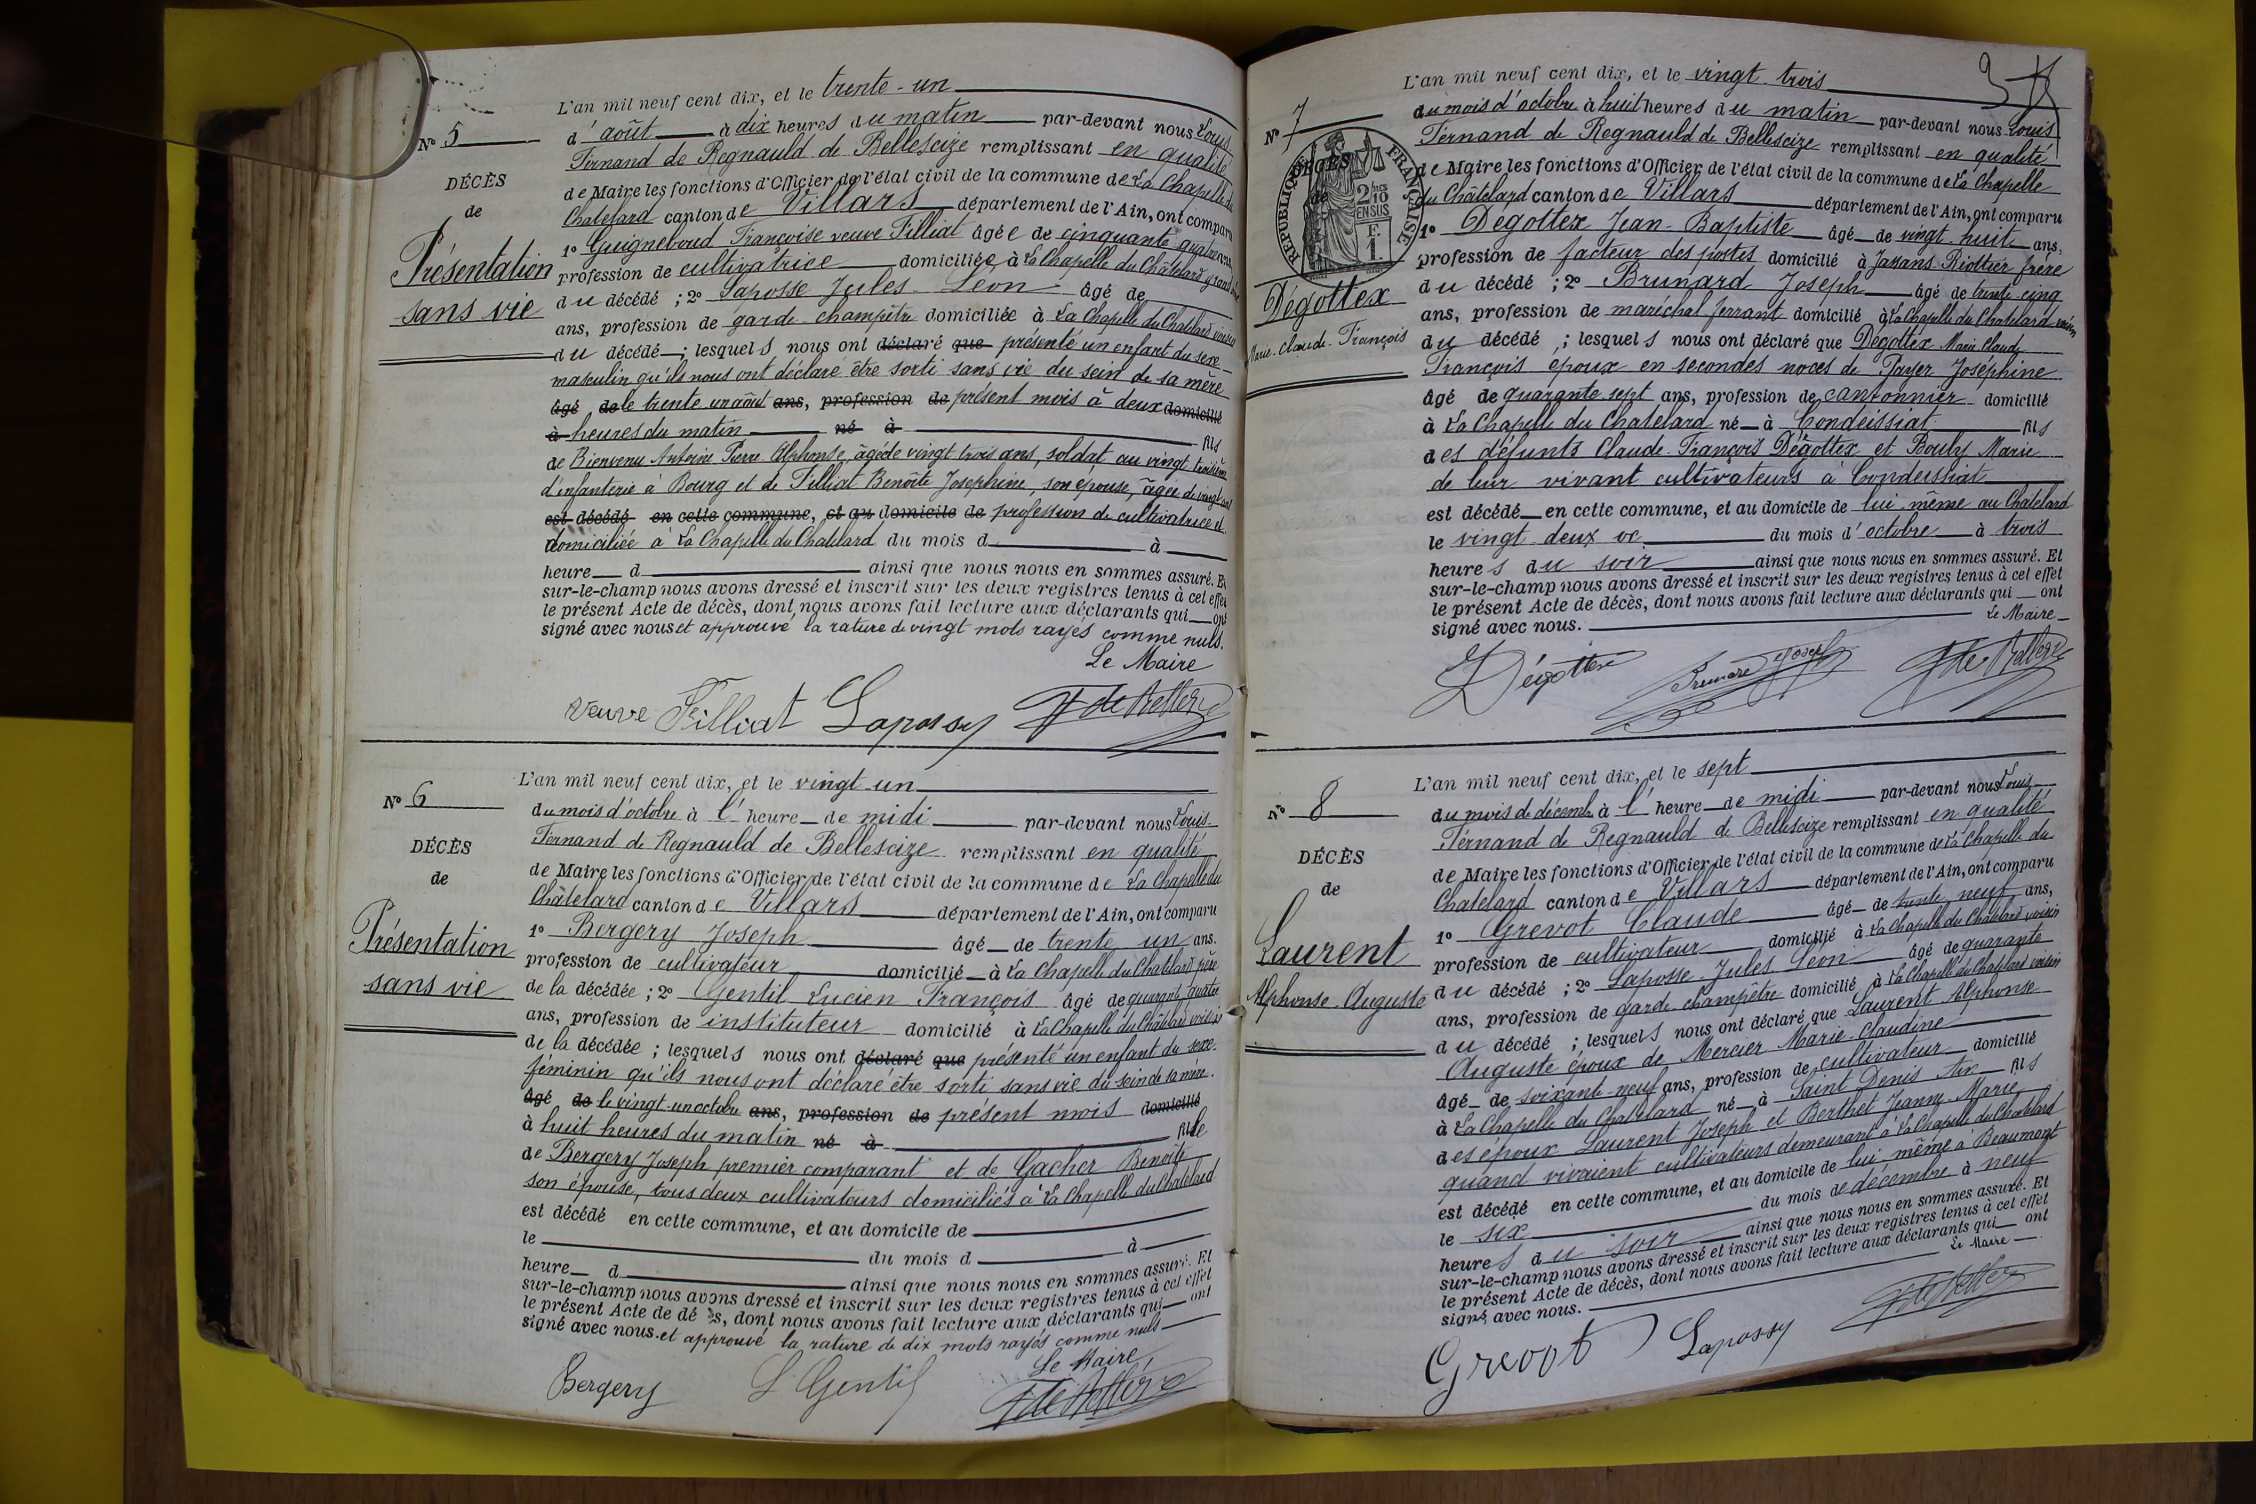 N° 5
DÉCÈS
de
Présentation
sans vie
L'an mil neuf cent dix, et le trente-un
d'août à dix heures du matin par-devant nous Louis
Fernand de Regnauld de Bellescize remplissant en qualité
de Maire les fonctions d'Officier de l'état civil de la commune de La Chapelle du
Chatelard canton de Villars département de l'Ain, ont comparu
1° Guigneboud Françoise veuve Filliat âgée de cinquante quatre ans,
profession de cultivatrice domiciliée à La Chapelle du Châtelard grand'mère
du décédé ; 2° Laposse Jules Léon âgé de
ans, profession de garde-champêtre domiciliée à La Chapelle du Chatelard voisin
du décédé ; lesquels nous ont déclaré que présenté un enfant du sexe
masculin qu'ils nous ont déclaré être sorti sans vie du sein de sa mère
âgé de le trente un août ans, profession de présent mois à deux domicilié
à heures du matin né à fils
de Bienvenu Antoine Pierre Alphonse, âgé de vingt trois ans, soldat au vingt troisième
d'infanterie à Bourg et de Filliat Benoîte Josephine, son épouse, âgée de vingt ans
est décédé en cette commune, et au domicile de profession de cultivatrice et
domiciliée à La Chapelle du Chatelard du mois d à
heure d ainsi que nous nous en sommes assuré. Et
sur-le-champ nous avons dressé et inscrit sur les deux registres tenus à cet effet
le présent Acte de décès, dont nous avons fait lecture aux déclarants qui ont
signé avec nous et approuvé la rature de vingt mots rayés comme nuls.
Le Maire
Veuve Filliat Lapossy F de Bellescize
N° 6
DÉCÈS
de
Présentation
sans vie
L'an mil neuf cent dix, et le vingt-un
du mois d'octobre à l' heure de midi par-devant nous Louis
Fernand de Regnauld de Bellescize remplissant en qualité
de Maire les fonctions d'Officier de l'état civil de la commune de La Chapelle du
Châtelard canton de Villars département de l'Ain, ont comparu
1° Bergery Joseph âgé de trente un ans.
profession de cultivateur domicilié à La Chapelle du Chatelard père
de la décédée ; 2° Gentil Lucien François âgé de quarante quatre
ans, profession de instituteur domicilié à La Chapelle du Châtelard voisin
de la décédée ; lesquels nous ont déclaré que présenté un enfant du sexe
féminin qu'ils nous ont déclaré être sorti sans vie du sein de sa mère.
âgé de le vingt-un octobre ans, profession de présent mois domicilié
à huit heures du matin né à fille
de Bergery Joseph premier comparant et de Gacher Benoîte
son épouse, tous deux cultivateurs domiciliés à La Chapelle du Chatelard
est décédé en cette commune, et au domicile de
le du mois d à
heure d ainsi que nous nous en sommes assuré. Et
sur-le-champ nous avons dressé et inscrit sur les deux registres tenus à cet effet
le présent Acte de décès, dont nous avons fait lecture aux déclarants qui ont
signé avec nous. et approuvé la rature de dix mots rayés comme nuls
Le Maire
Bergery L Gentil F de Bellescize
N° 7
DÉCÈS
de
RÉPUBLIQUE FRANÇAISE
2/10 EN SUS
F. 1
Dégottex
Marie-Claude-François
L'an mil neuf cent dix, et le vingt-trois
du mois d'octobre à huit heures du matin par-devant nous Louis
Fernand de Regnauld de Bellescize remplissant en qualité
de Maire les fonctions d'Officier de l'état civil de la commune de La Chapelle
du Châtelard canton de Villars département de l'Ain, ont comparu
1° Dégottex Jean-Baptiste âgé de vingt-huit ans,
profession de facteur des postes domicilié à Jassans-Riottier frère
du décédé ; 2° Brunard Joseph âgé de trente cinq
ans, profession de maréchal ferrant domicilié à La Chapelle du Chatelard voisin
du décédé ; lesquels nous ont déclaré que Dégottex Marie Claude
François époux en secondes noces de Payer Joséphine
âgé de quarante-sept ans, profession de cantonnier domicilié
à La Chapelle du Chatelard né à Condeissiat fils
des défunts Claude François Dégottex et Bouly Marie
de leur vivant cultivateurs à Condeissiat
est décédé en cette commune, et au domicile de lui-même au Chatelard
le vingt deux oc du mois d'octobre à trois
heures du soir ainsi que nous nous en sommes assuré. Et
sur-le-champ nous avons dressé et inscrit sur les deux registres tenus à cet effet
le présent Acte de décès, dont nous avons fait lecture aux déclarants qui ont
signé avec nous. Le Maire
Dégottex Brunard Joseph F de Bellescize
N° 8
DÉCÈS
de
Laurent
Alphonse-Auguste
L'an mil neuf cent dix, et le sept
du mois de décemb. à l' heure de midi par-devant nous Louis
Fernand de Regnauld de Bellescize remplissant en qualité
de Maire les fonctions d'Officier de l'état civil de la commune de La Chapelle du
Chatelard canton de Villars département de l'Ain, ont comparu
1° Grevot Claude âgé de trente neuf ans,
profession de cultivateur domicilié à La Chapelle du Chatelard voisin
du décédé ; 2° Laposse Jules Léon âgé de quarante
ans, profession de garde-champêtre domicilié à La Chapelle du Chatelard voisin
du décédé ; lesquels nous ont déclaré que Laurent Alphonse
Auguste époux de Mercier Marie Claudine
âgé de soixante-neuf ans, profession de cultivateur domicilié
à La Chapelle du Chatelard né à Saint Denis Ain fils
des époux Laurent Joseph et Berthet Jeanne-Marie
quand vivaient cultivateurs demeurant à La Chapelle du Chatelard
est décédé en cette commune, et au domicile de lui-même à Beaumont
le six du mois de décembre à neuf
heures du soir ainsi que nous nous en sommes assuré. Et
sur-le-champ nous avons dressé et inscrit sur les deux registres tenus à cet effet
le présent Acte de décès, dont nous avons fait lecture aux déclarants qui ont
signé avec nous. Le Maire
Grevot Lapossy F de Bellescize